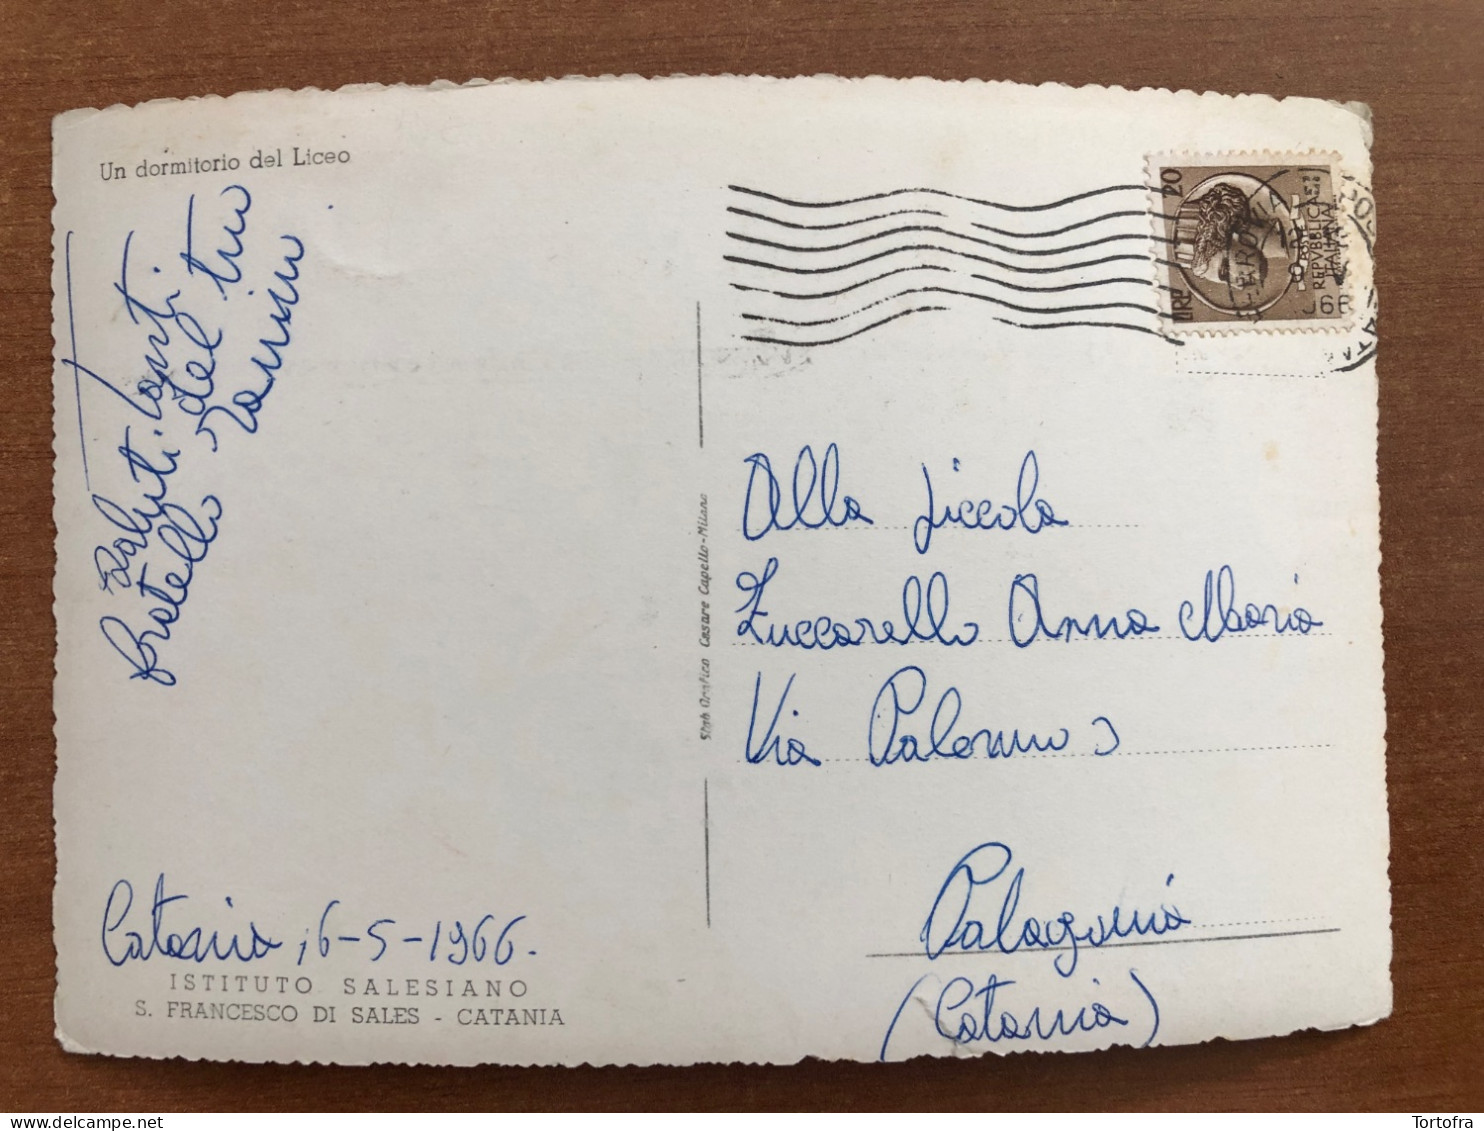 Un dormitorio del Liceo
Saluti tanti
fratello del tuo
Catania, 6-5-1966.
ISTITUTO SALESIANO
S. FRANCESCO DI SALES - CATANIA
Stab Grafico Cesare Capello-Milano
LIRE 20
POSTE
REPVBBLICA
ITALIANA
Alla piccola
Zuccarello Anna Maria
Via Palermo 3
Palagonia
(Catania)
Tortofra